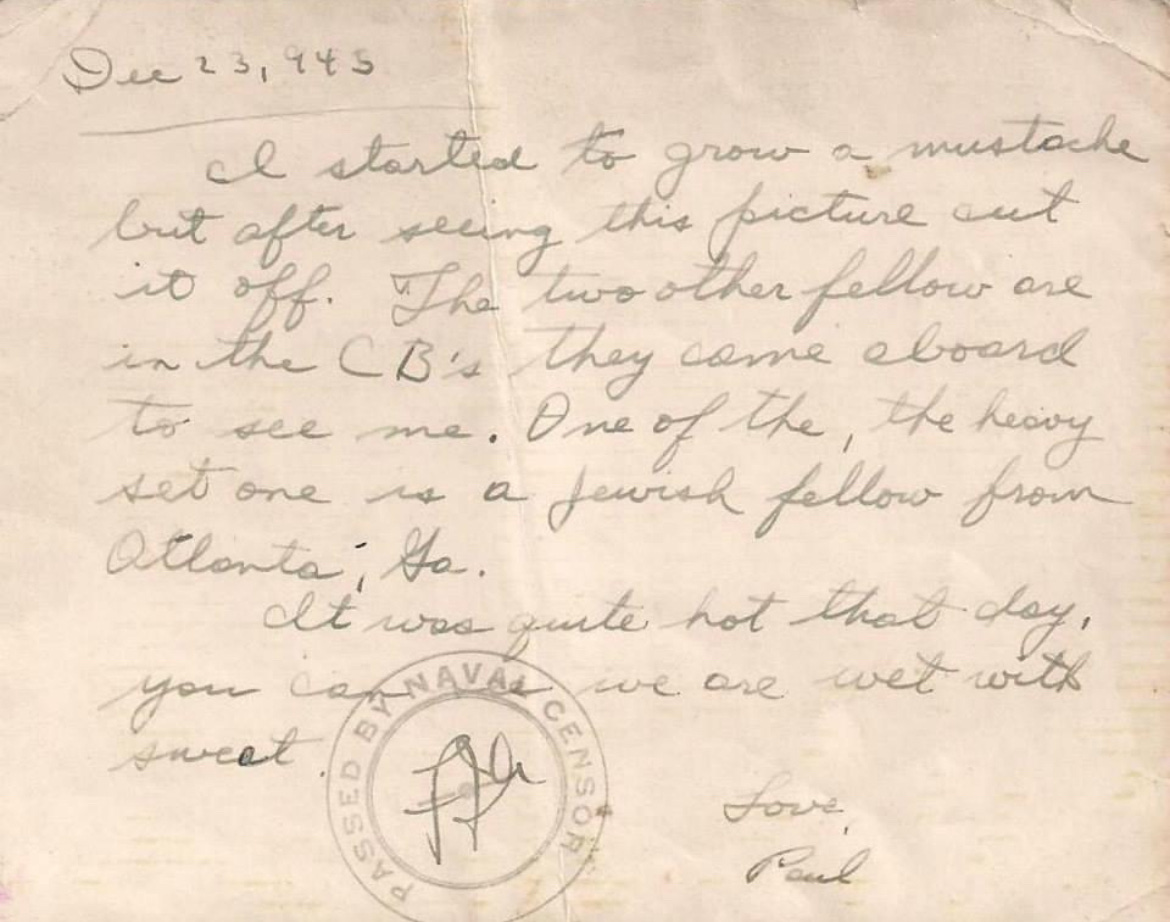 Dec 23, 943
I started to grow a mustache
but after seeing this picture cut
it off. The two other fellow are
in the CB's they came aboard
to see me. One of the, the heavy
set one is a Jewish fellow from
Atlanta, Ga.
It was quite hot that day,
you can see we are wet with
sweat.
PASSED BY NAVAL CENSOR
Love,
Paul